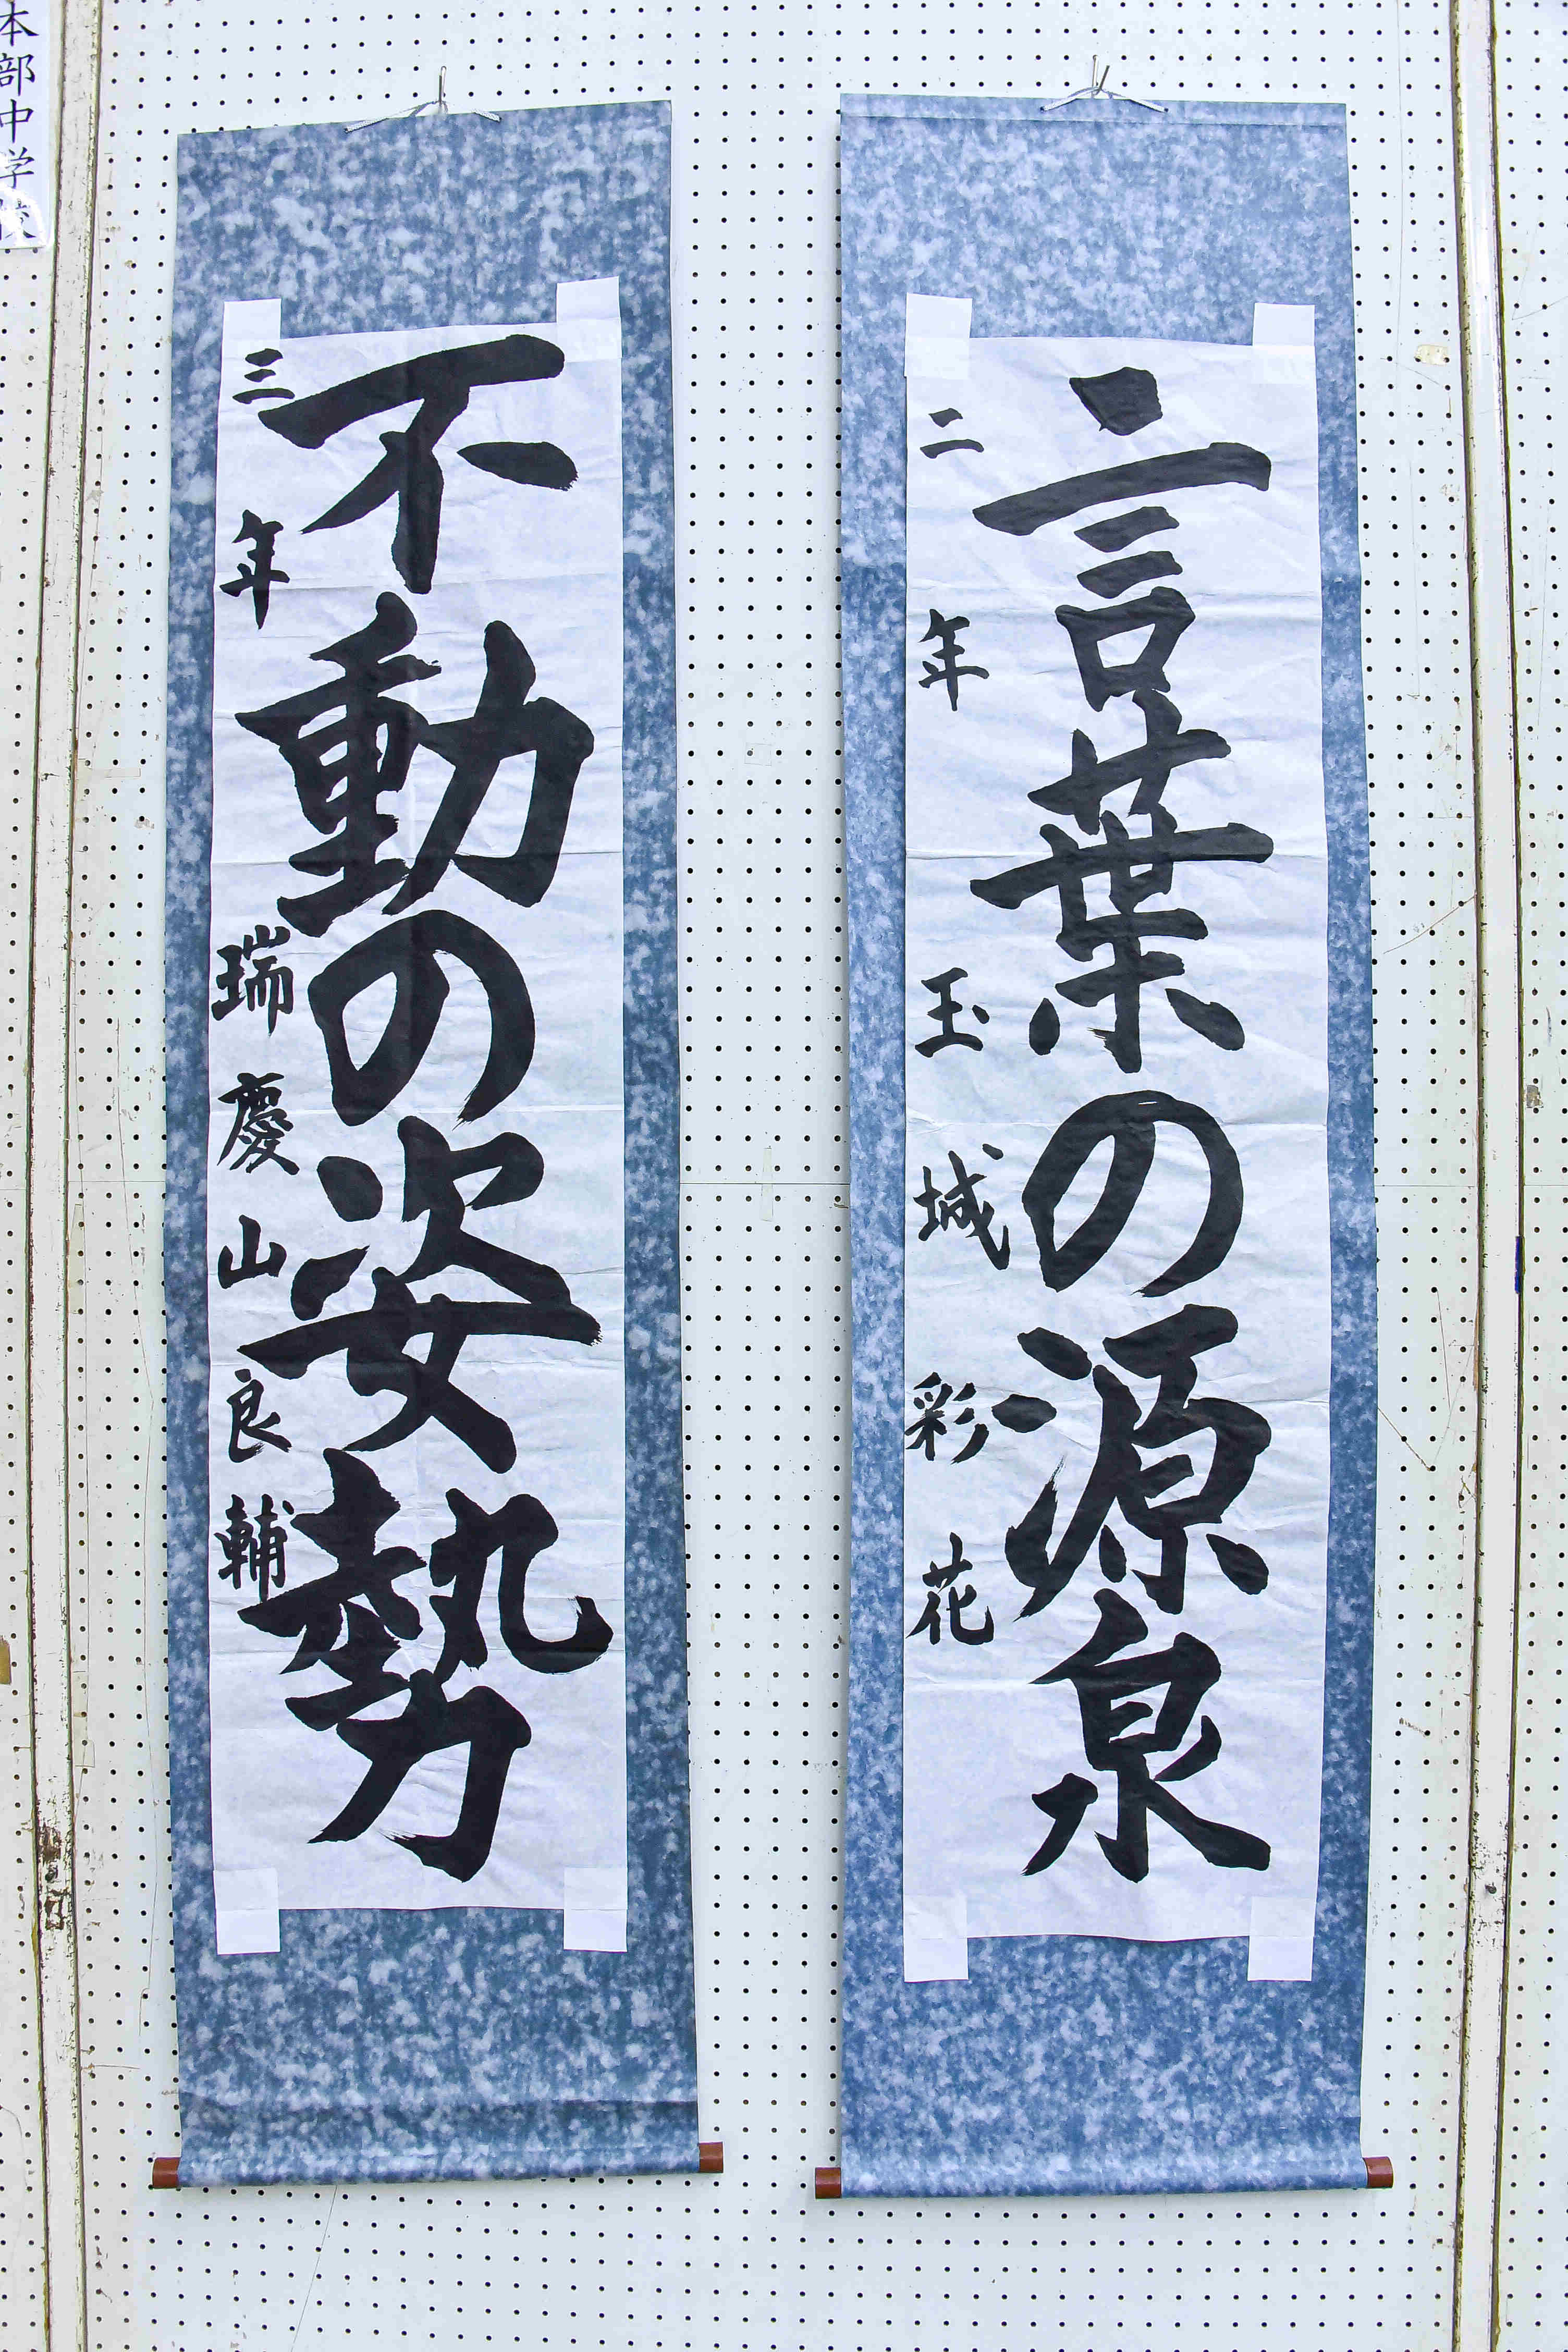 言葉の源泉
二年 玉城彩花
不動の姿勢
三年 瑞慶山良輔
本部中学校